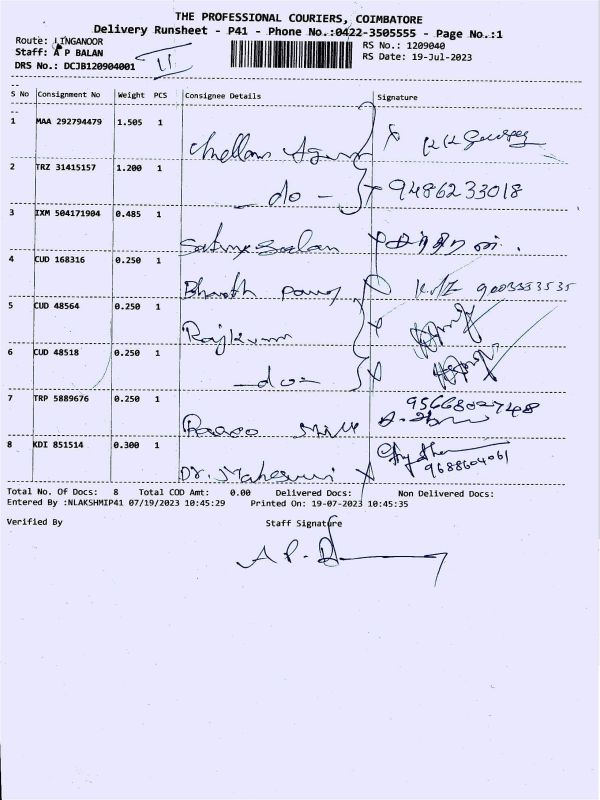 THE PROFESSIONAL COURIERS, COIMBATORE
Delivery Runsheet - P41 - Phone No.:0422-3505555 - Page No.:1
Route: LINGANOOR
RS No.: 1209040
Staff: A P BALAN
RS Date: 19-Jul-2023
DRS No.: DCJB120904001
II
S No Consignment No Weight PCS Consignee Details Signature
1 MAA 292794479 1.505 1
Chellam
2 TRZ 31415157 1.200 1
— do — 9486233018
3 IXM 504171904 0.485 1
4 CUD 168316 0.250 1
Bharath 9003353535
5 CUD 48564 0.250 1
Rajkumar
6 CUD 48518 0.250 1
— do —
7 TRP 5889676 0.250 1
9566802748
8 KDI 851514 0.300 1
Dr. Maheswari
9688604061
Total No. Of Docs: 8 Total COD Amt: 0.00 Delivered Docs: Non Delivered Docs:
Entered By :NLAKSHMIP41 07/19/2023 10:45:29 Printed On: 19-07-2023 10:45:35
Verified By Staff Signature
A P.